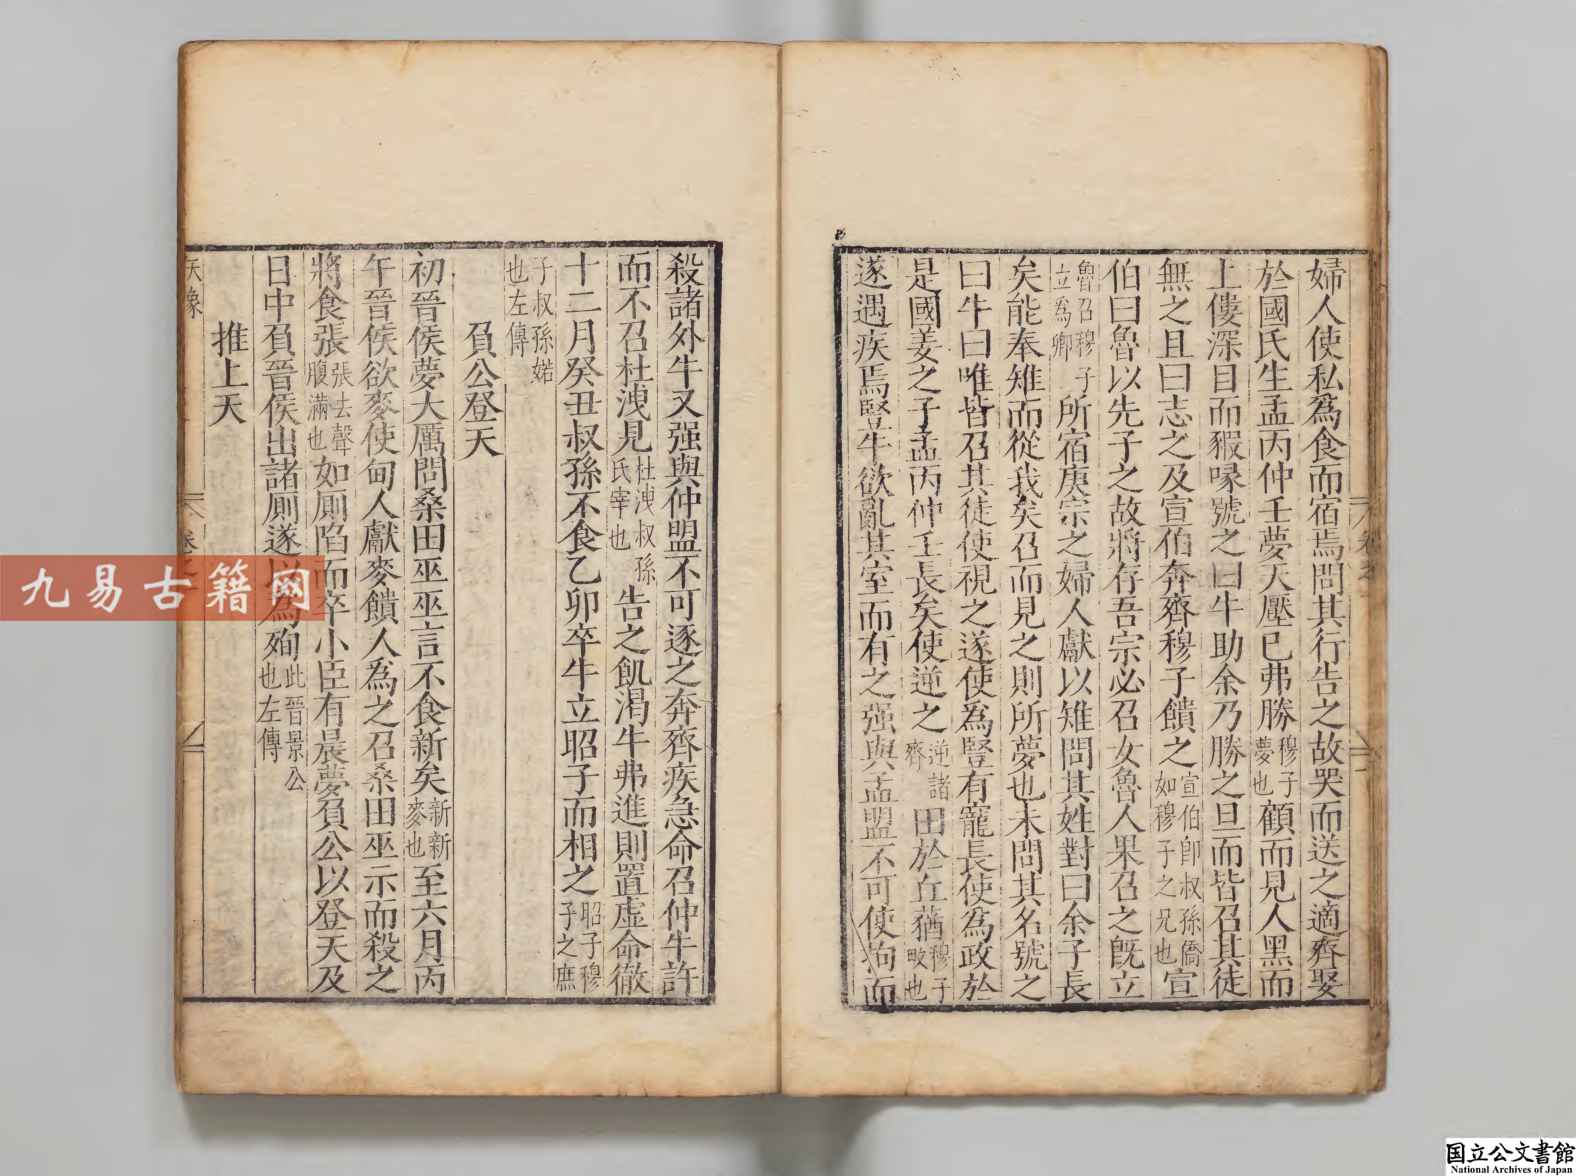 婦人使私爲食而宿焉問其行告之故哭而送之適齊娶
於國氏生孟丙仲壬夢天壓已弗勝穆子夢也顧而見人黑而
上僂深目而豭喙號之曰牛助余乃勝之旦而皆召其徒
無之且曰志之及宣伯奔齊穆子饋之宣伯卽叔孫僑如穆子之兄也宣
伯曰魯以先子之故將存吾宗必召女魯人果召之旣立
魯召穆子立爲卿所宿庚宗之婦人獻以雉問其姓對曰余子長
矣能奉雉而從我矣召而見之則所夢也未問其名號之
曰牛曰唯皆召其徒使視之遂使爲豎有寵長使爲政於
是國姜之子孟丙仲壬長矣使逆之逆諸齊田於丘蕕穆子畋也
遂遇疾焉豎牛欲亂其室而有之强與孟盟不可使拘而
殺諸外牛又强與仲盟不可逐之奔齊疾急命召仲牛許
而不召杜洩見杜洩叔孫氏宰也告之飢渴牛弗進則置虛命徹
十二月癸丑叔孫不食乙卯卒牛立昭子而相之昭子穆子之庶
子叔孫婼也左傳
負公登天
初晉侯夢大厲問桑田巫巫言不食新矣新新麥也至六月丙
午晉侯欲麥使甸人獻麥饋人爲之召桑田巫示而殺之
將食張張去聲腹滿也如厠陷而卒小臣有晨夢負公以登天及
日中負晉侯出諸厠遂以爲殉此晉景公也左傳
推上天
九易古籍网
国立公文書館
National Archives of Japan